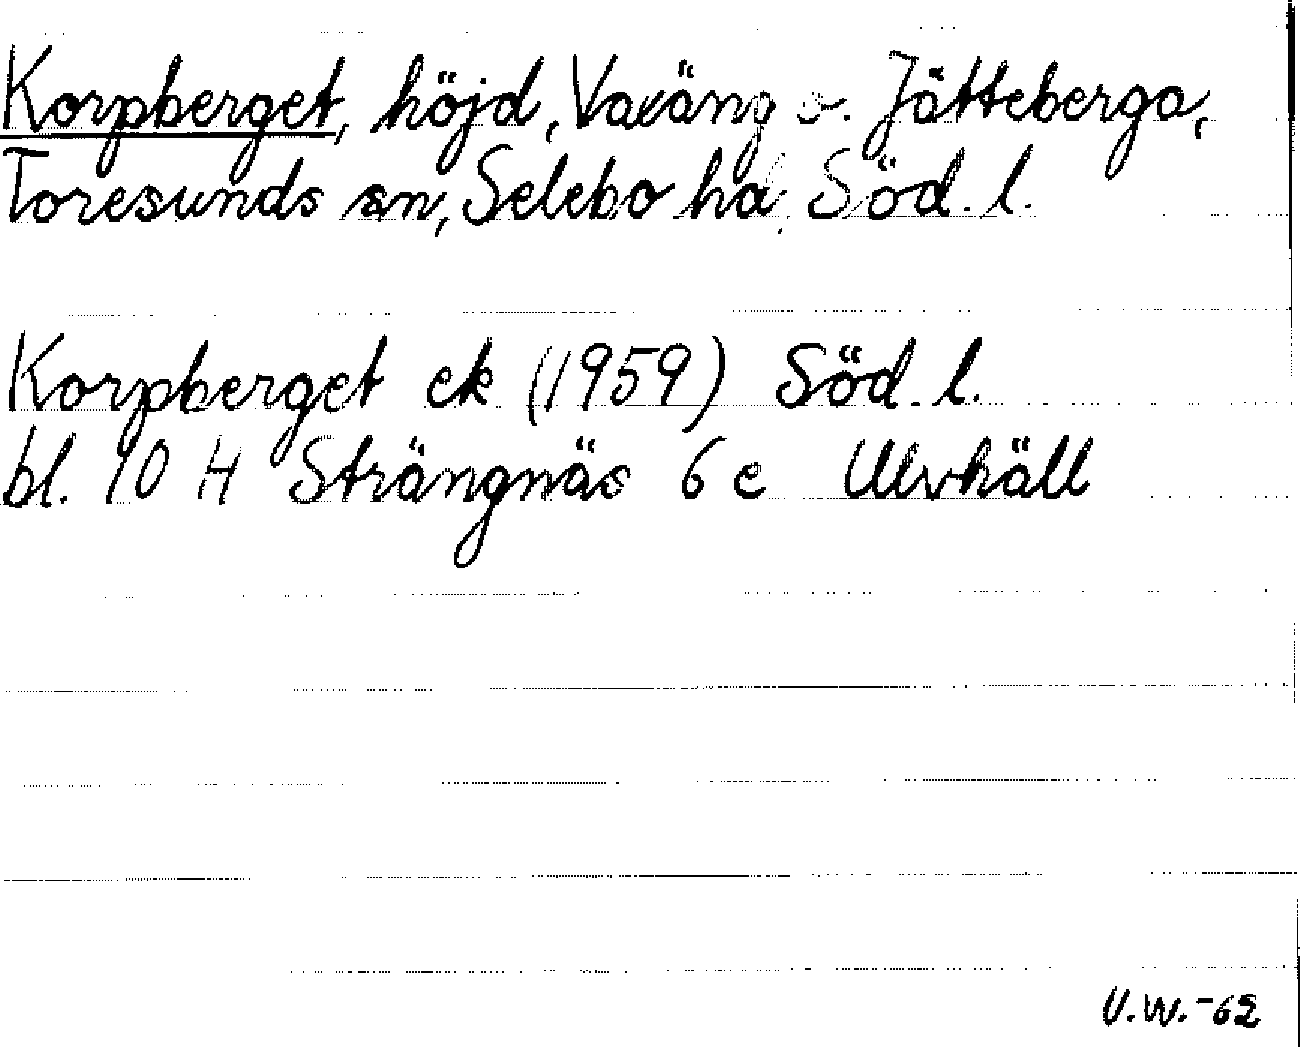 Korpberget, höjd, Vaxäng o. Jätteberga,
Toresunds sn, Selebo hd, Söd. l.
Korpberget ek (1959) Söd. l.
bl. 10 H Strängnäs 6 e Ulvhäll
U.W.-62